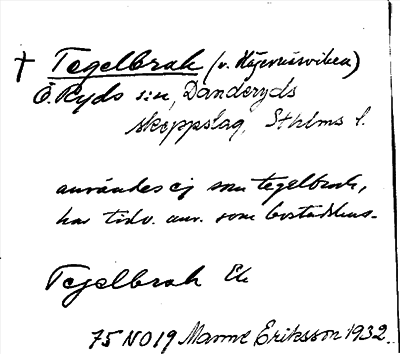 † Tegelbrak (v. Hägernäsviken)
Ö. Ryds s:n, Danderyds
skeppslag, Sthlms l.
användes ej som tegelbruk,
har tidv. anv. som bostadshus.
Tegelbrak Ek
75 NO19 Manne Eriksson 1932.